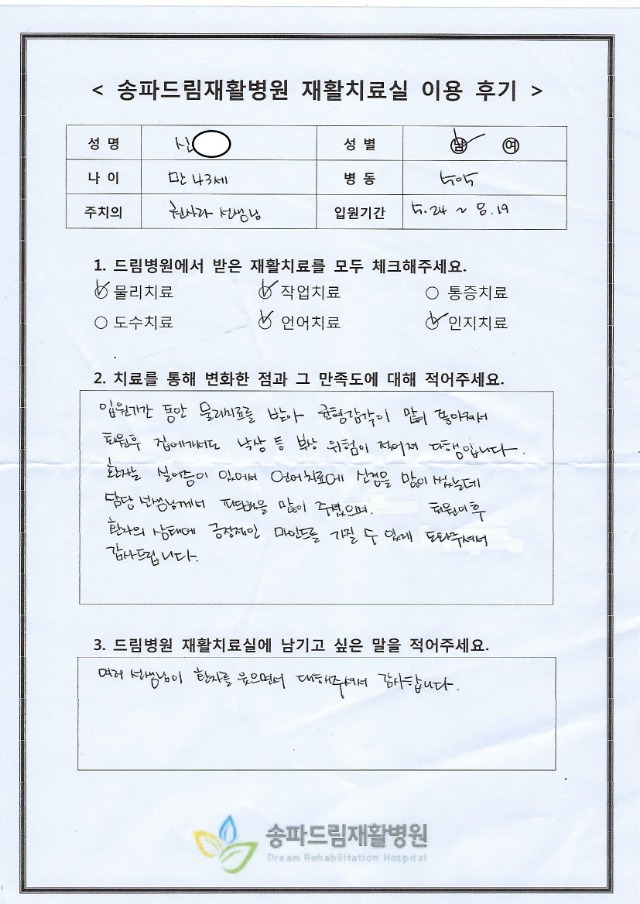 < 송파드림재활병원 재활치료실 이용 후기 >
성 명 신 성 별 남 여
나 이 만 43세 병 동
주치의 천사라 선생님 입원기간 5.24 ~ 8.19
1. 드림병원에서 받은 재활치료를 모두 체크해주세요.
물리치료 작업치료 통증치료
도수치료 언어치료 인지치료
2. 치료를 통해 변화한 점과 그 만족도에 대해 적어주세요.
입원기간 동안 물리치료를 받아 균형감각이 많이 좋아져서
퇴원후 집에가서도 낙상 등 부상 위험이 적어져 다행입니다.
환자는 실어증이 있어서 언어치료에 신경을 많이 썼는데
담당 선생님께서 피드백을 많이 주셨으며, 퇴원이후
환자의 상태에 긍정적인 마인드를 가질 수 있게 도와주셔서
감사드립니다.
3. 드림병원 재활치료실에 남기고 싶은 말을 적어주세요.
여러 선생님이 환자를 웃으면서 대해주셔서 감사합니다.
송파드림재활병원
Dream Rehabilitation Hospital